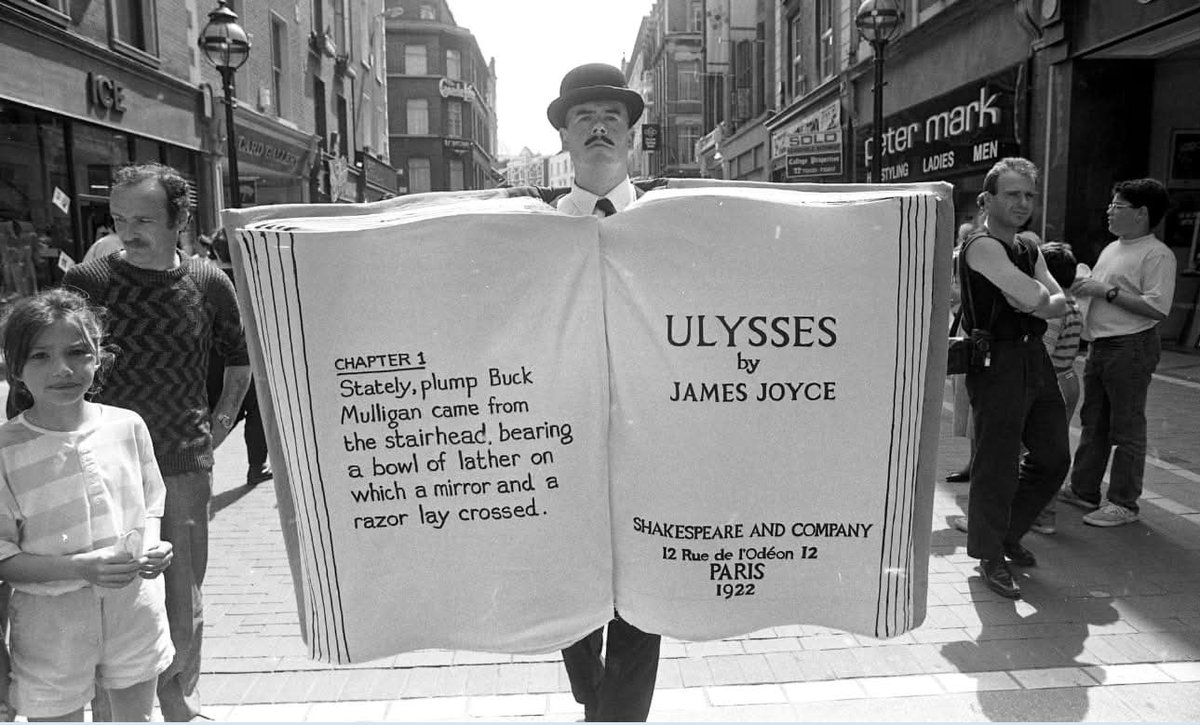 ICE
CARD GALLERY
SOLD
College Properties
Peter mark
STYLING LADIES MEN
CHAPTER 1
Stately, plump Buck
Mulligan came from
the stairhead, bearing
a bowl of lather on
which a mirror and a
razor lay crossed.
ULYSSES
by
JAMES JOYCE
SHAKESPEARE AND COMPANY
12 Rue de l'Odéon 12
PARIS
1922